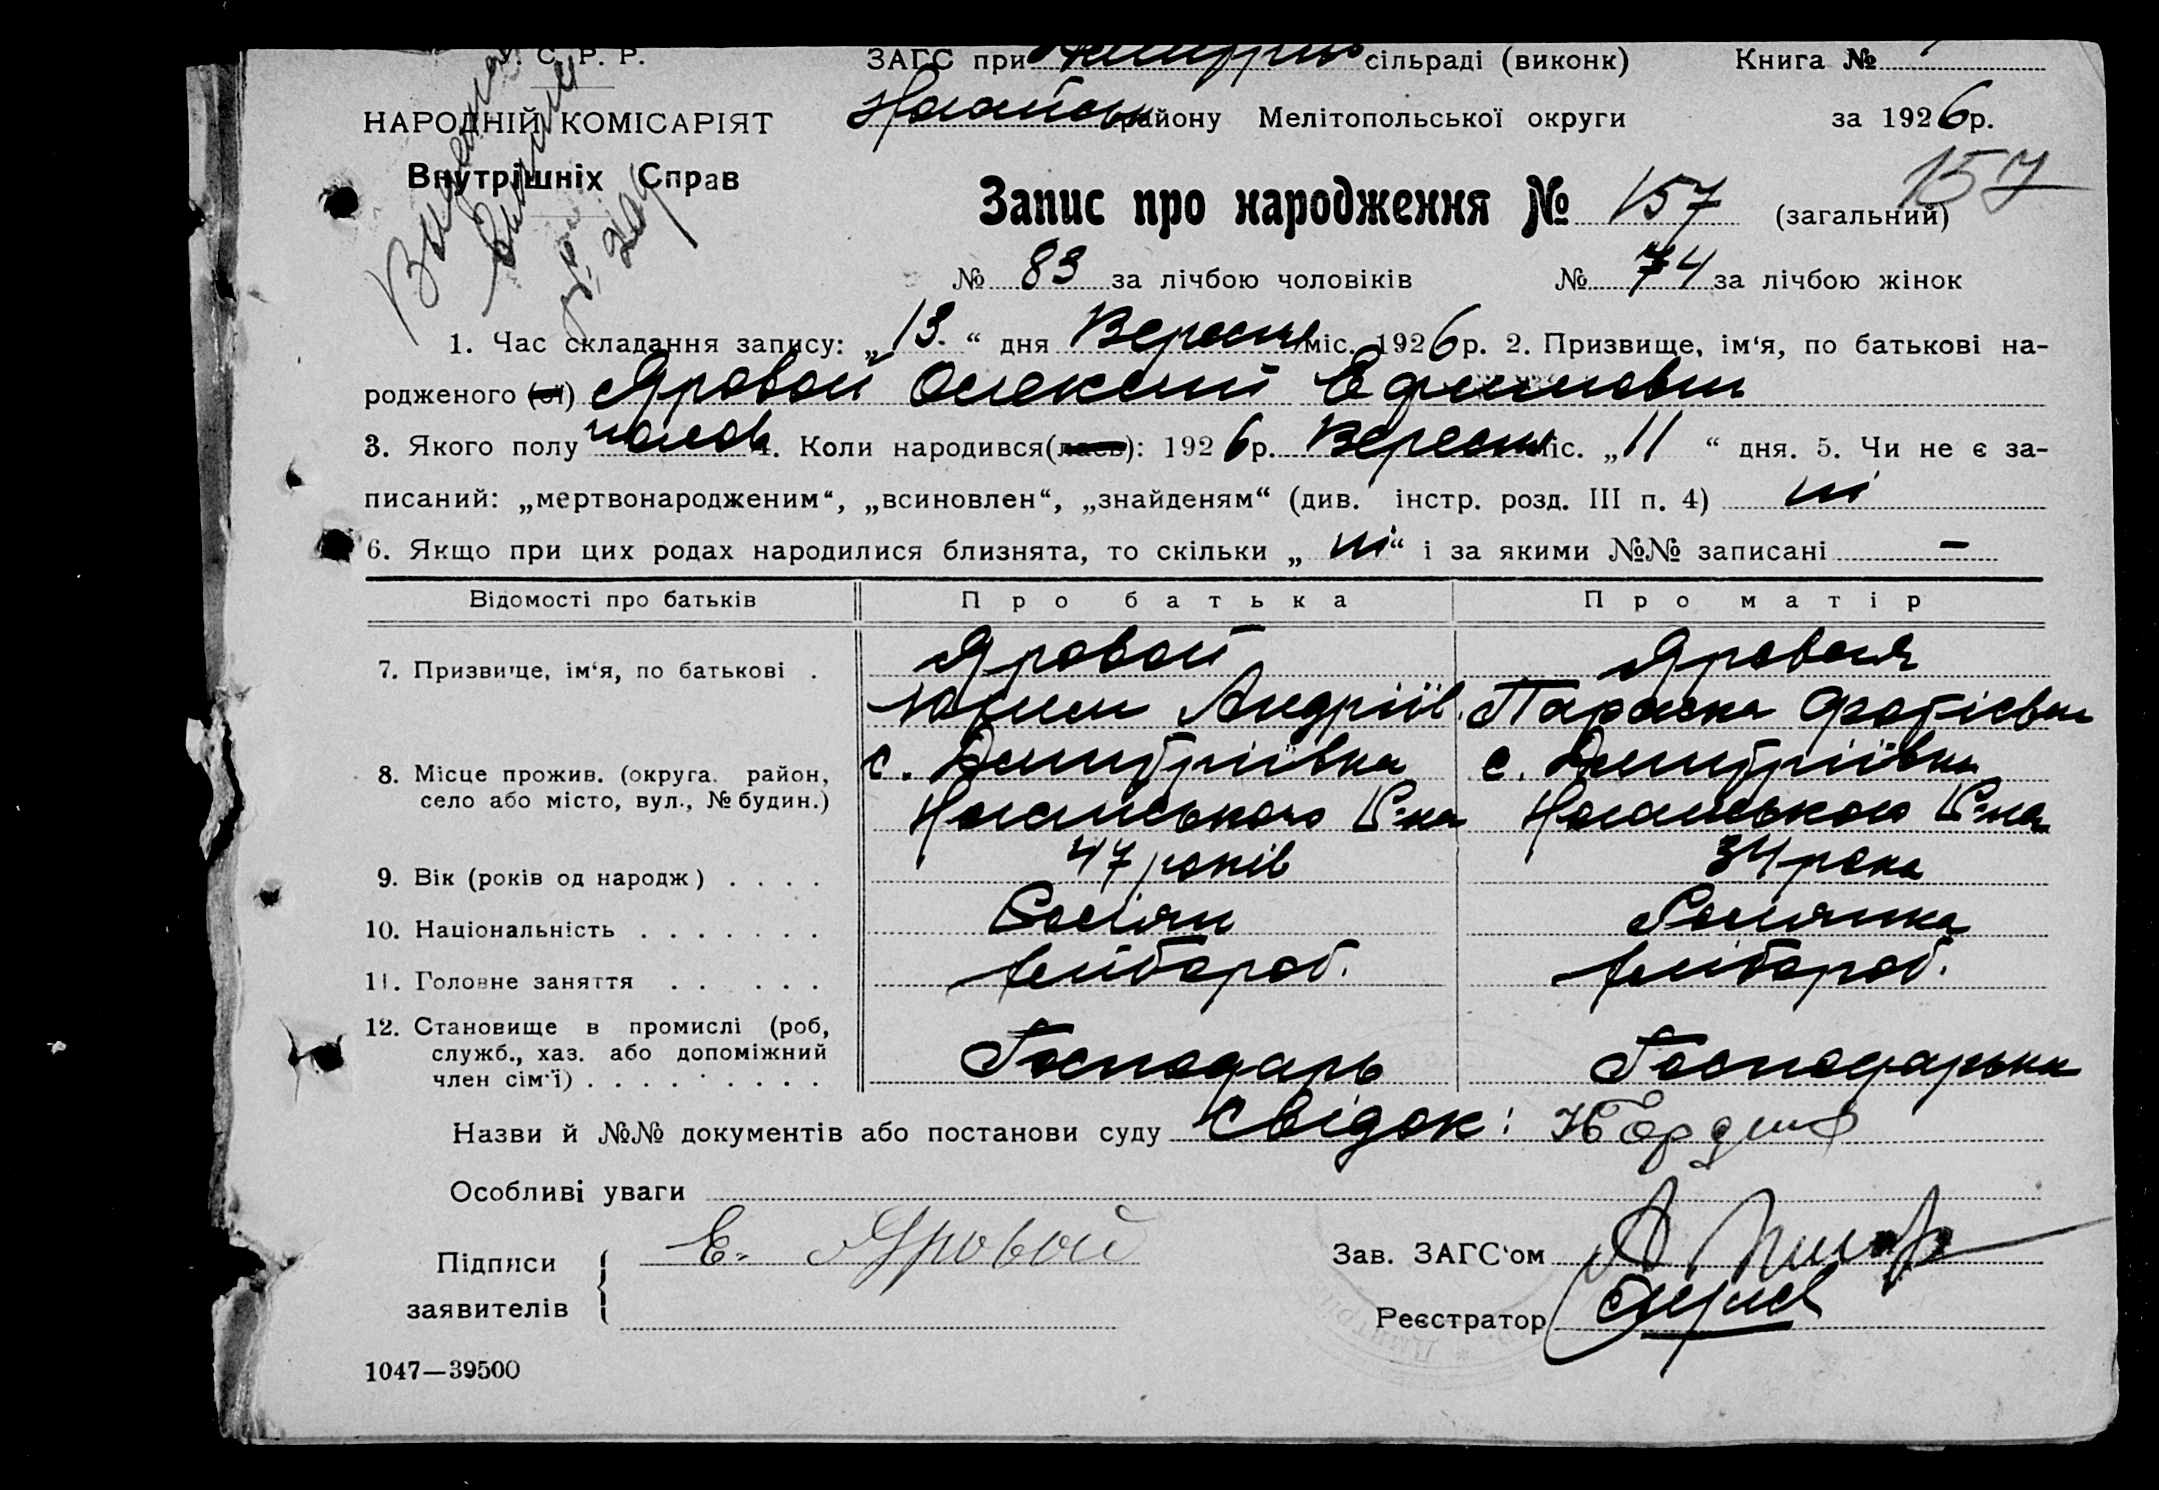 У. С. Р. Р.
ЗАГС при сільраді (виконк) Книга №
НАРОДНІЙ КОМІСАРІЯТ
Ногайськ району Мелітопольської округи за 1926р.
Внутрішніх Справ
157
Запис про народження № 157 (загальний)
№ 83 за лічбою чоловіків № 74 за лічбою жінок
1. Час складання запису: „13.“ дня Вересня міс. 1926р. 2. Призвище, ім‘я, по батькові на-
родженого (ої) Яровой Олексий Ефимович
3. Якого полу чолов. 4. Коли народився(лась): 1926р. Вересня міс. „11“ дня. 5. Чи не є за-
писаний: „мертвонародженим“, „всиновлен“, „знайденям“ (див. інстр. розд. III п. 4) ні
6. Якщо при цих родах народилися близнята, то скільки „ні“ і за якими №№ записані –
Відомості про батьків Про батька Про матір
7. Призвище, ім‘я, по батькові . Яровой Яровая
Андріїв. Параска Фотієвна
8. Місце прожив. (округа. район, с. Дмитріївка с. Дмитріївка
село або місто, вул., № будин.) Ногайського Р-на Ногайського Р-на
9. Вік (років од народж) . . . . 47 років 34 рока
10. Національність . . . . . . . Росіян Росіянка
11. Головне заняття . . . . . хлібороб. хлібороб.
12. Становище в промислі (роб,
служб., хаз. або допоміжний Господарь Господарька
член сім‘ї) . . . . . . . . . .
Назви й №№ документів або постанови суду Свідок:
Особливі уваги
Підписи Е. Яровой Зав. ЗАГС‘ом
заявителів Реєстратор
1047—39500